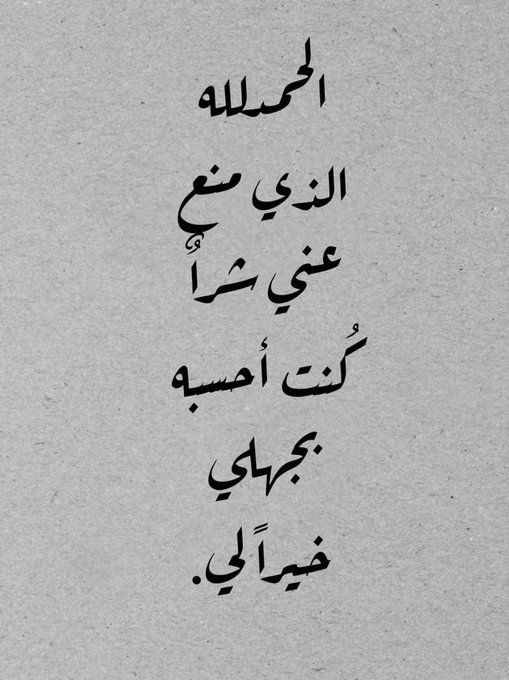 الحمدلله
الذي منع
عني شراٌ
كُنت أحسبه
بجهلي
خيراً لي.